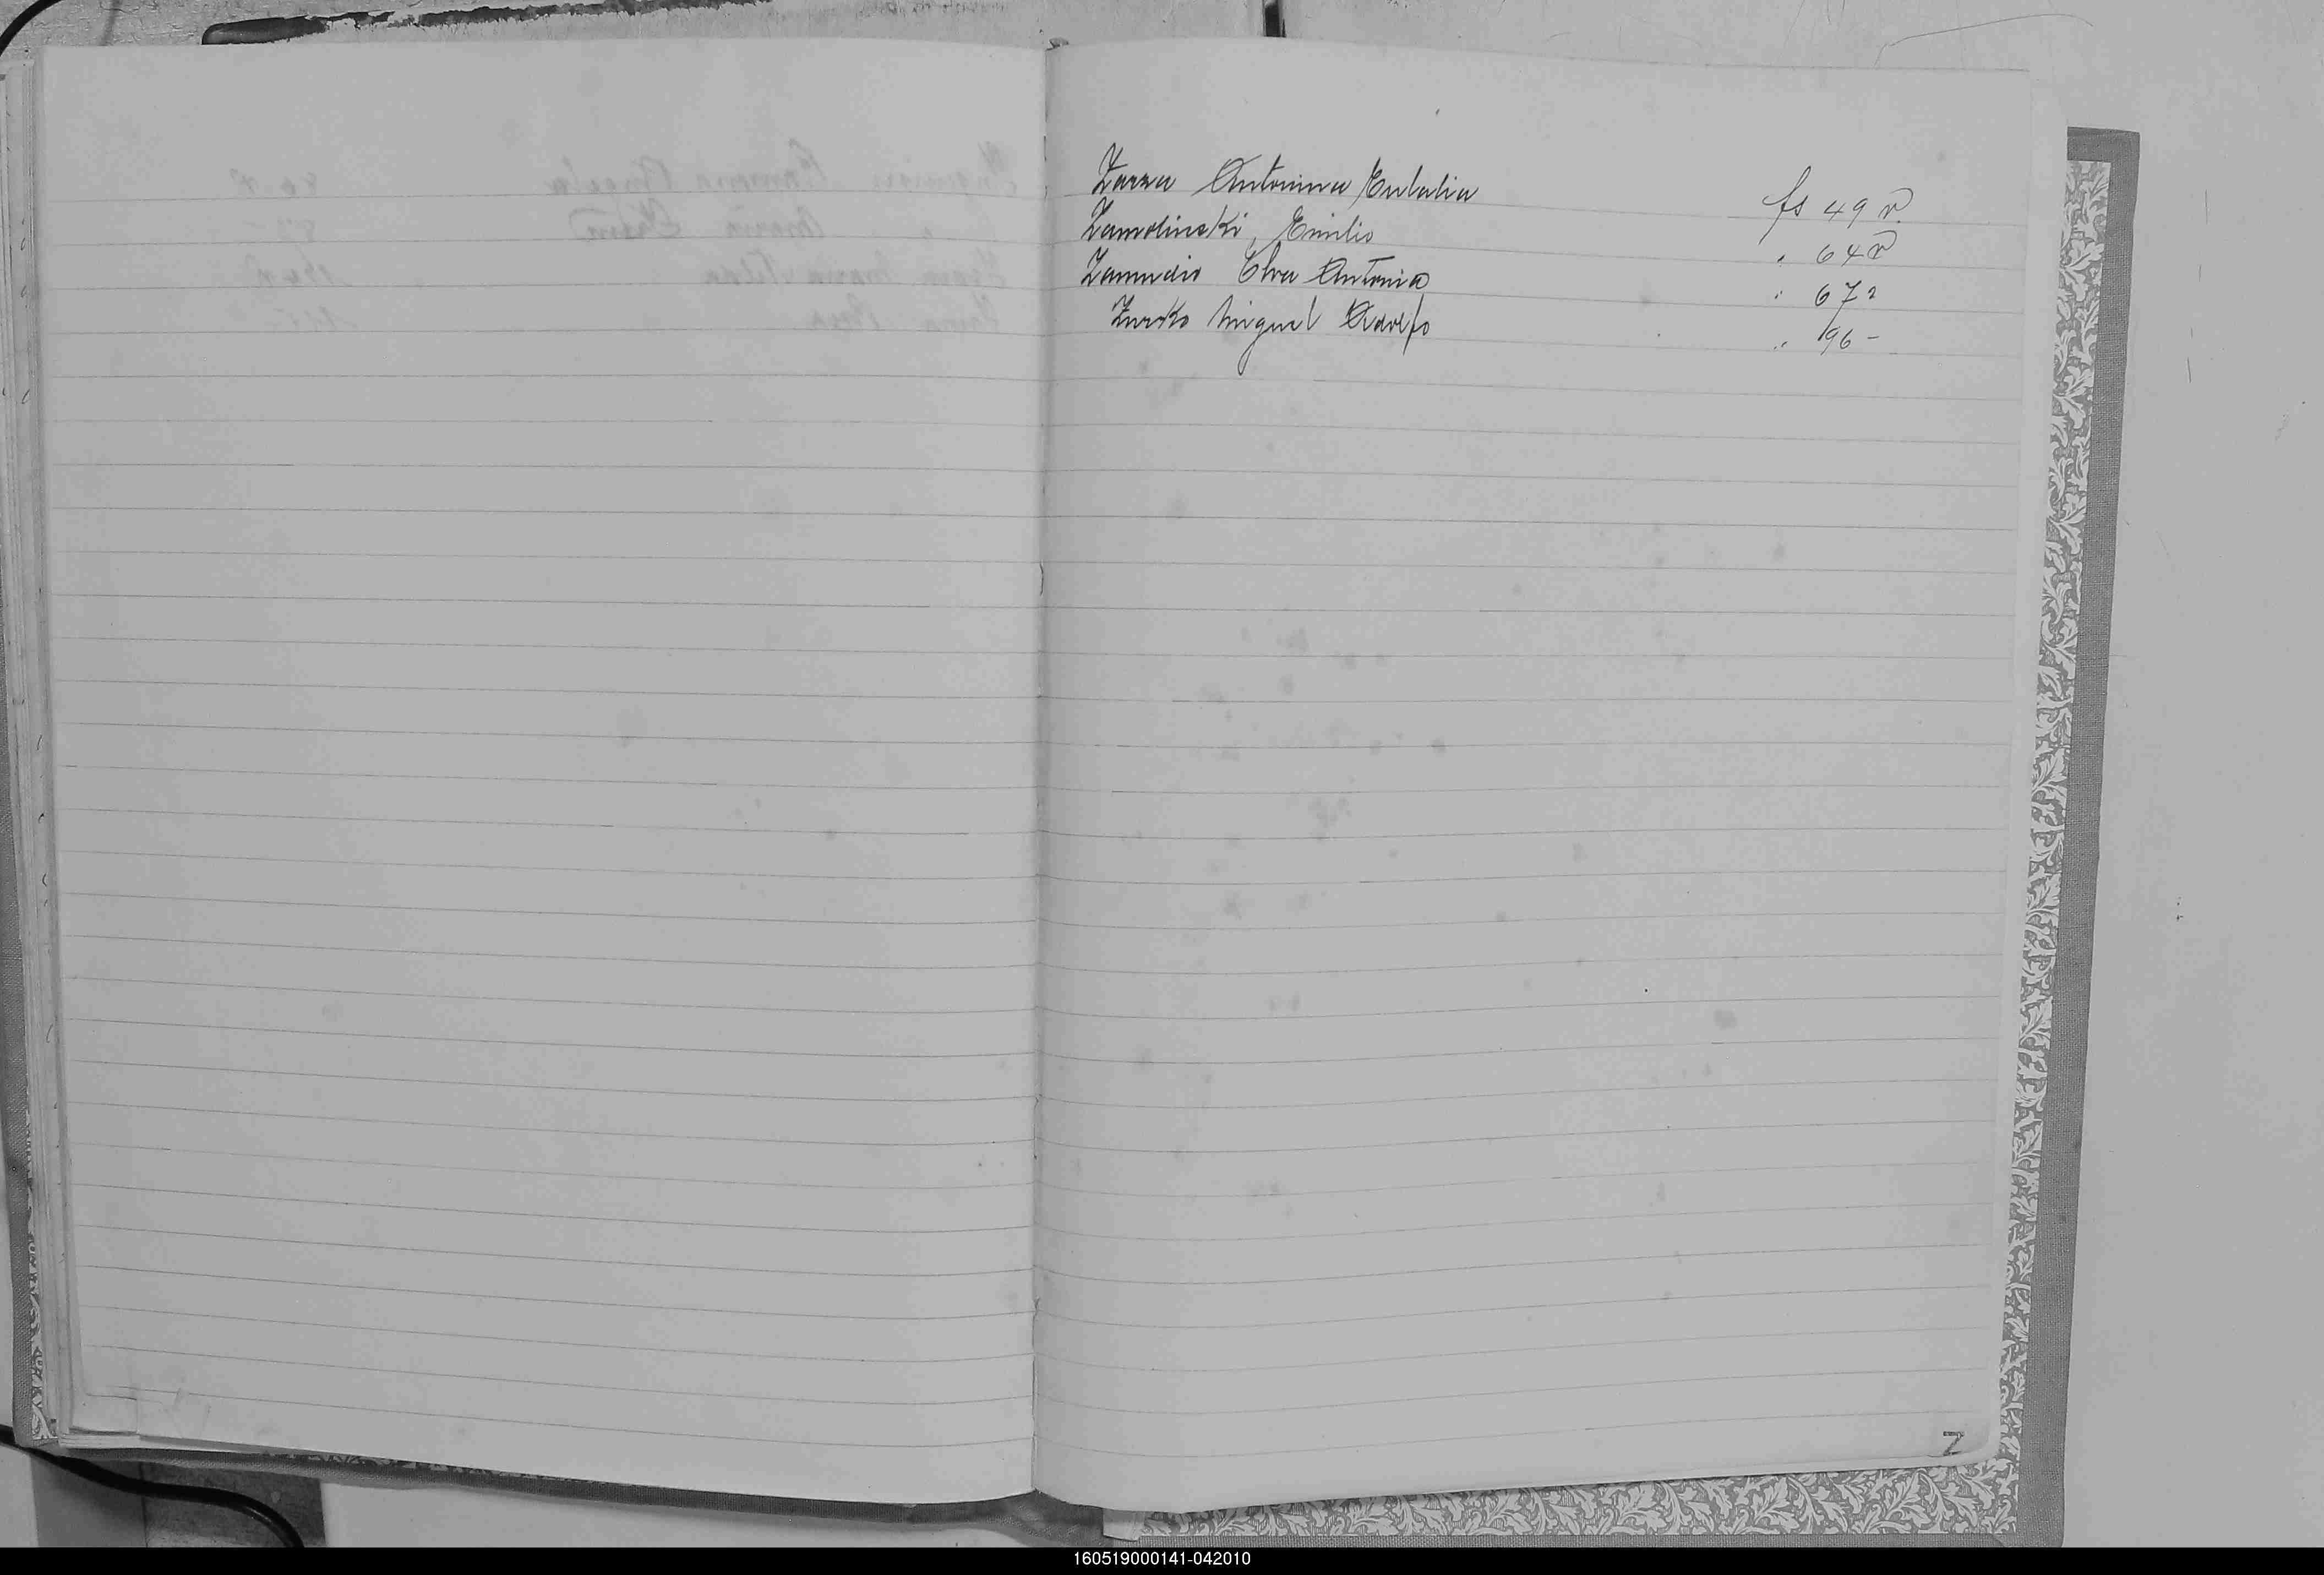 Zarza Antonina Eulalia fs 49 v.
Zamolinski, Emilio " 64 v
Zamudio Elva Antonia " 67 v
Zurko Miguel Adolfo " 96 -
Z
160519000141-042010